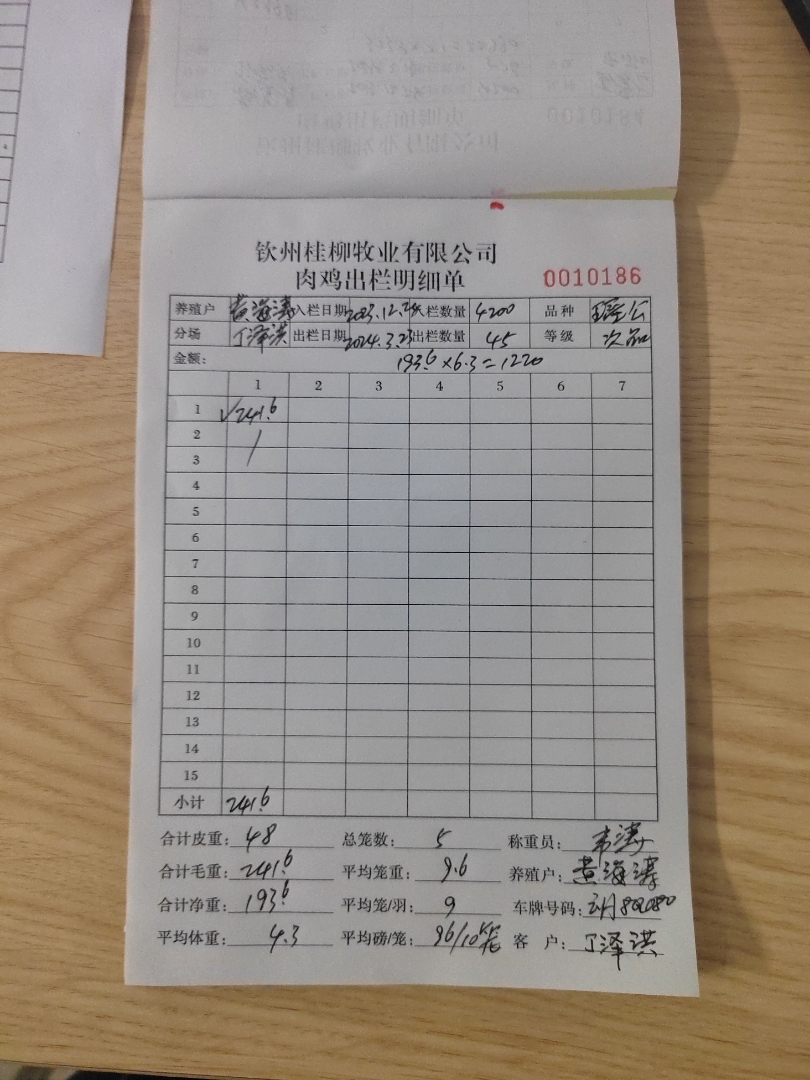 钦州桂柳牧业有限公司
肉鸡出栏明细单 0010186
养殖户 黄海涛 入栏日期 2023.12.2 入栏数量 4200 品种 瑶公
分场 丁泽洪 出栏日期 2024.3.23 出栏数量 45 等级 次品
金额: 193.6×6.3=1220
1 2 3 4 5 6 7
1 √241.6
2 /
3
4
5
6
7
8
9
10
11
12
13
14
15
小计 241.6
合计皮重: 48 总笼数: 5 称重员: 韦涛
合计毛重: 241.6 平均笼重: 9.6 养殖户: 黄海涛
合计净重: 193.6 平均笼/羽: 9 车牌号码:
平均体重: 4.3 平均磅/笼: 96/10 客 户: 丁泽洪